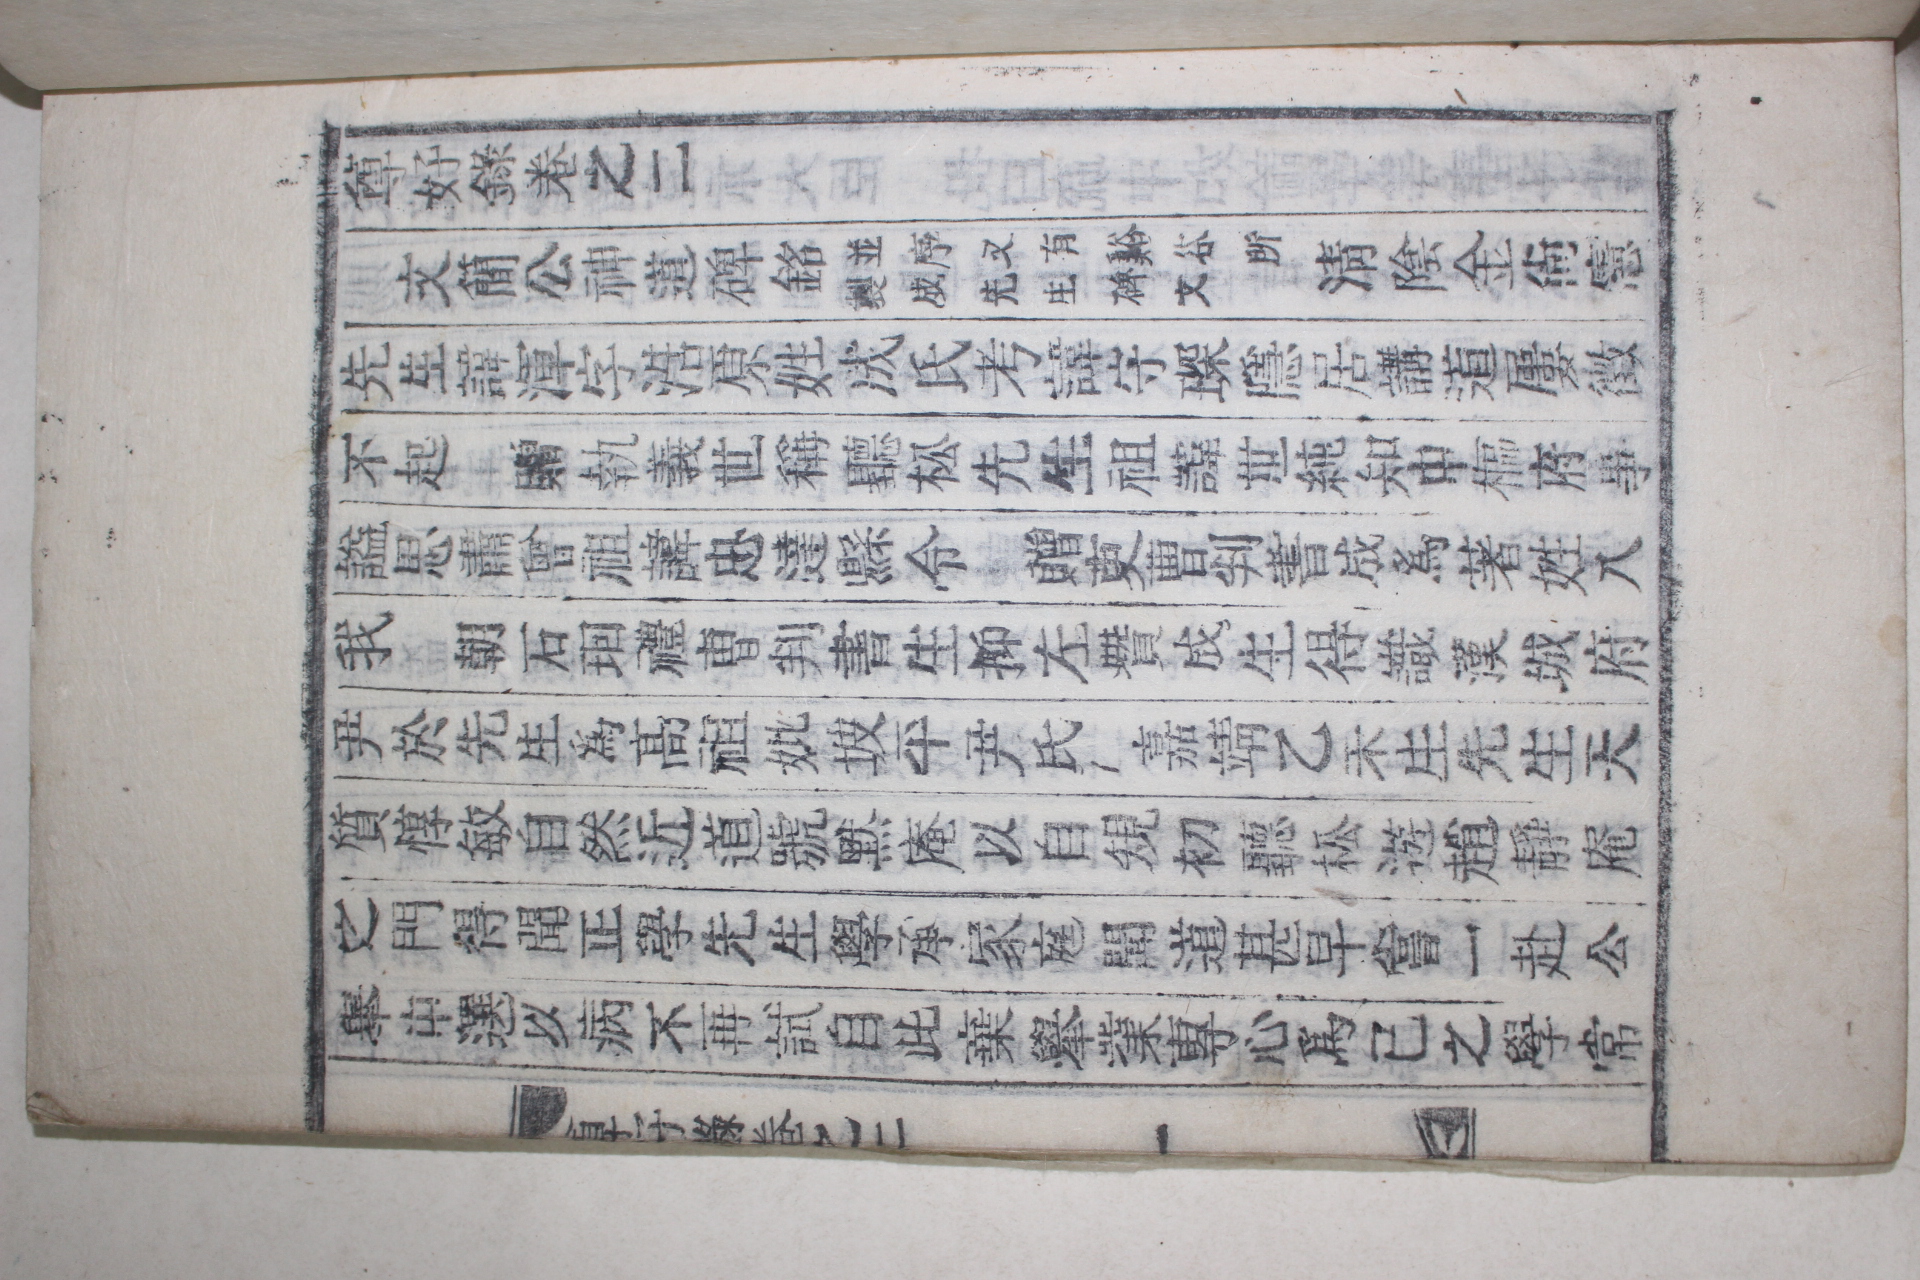 尊好錄卷之二
文簡公神道碑銘並序又有谿谷所製成先生碑文 淸陰金尙憲
先生諱渾字浩原姓成氏考諱守琛隱居講道屢徵
不起 贈執義世稱聽松先生祖諱世純知中樞府事
謚思肅曾祖諱忠達縣令 贈吏曹判書成爲著姓入
我 朝石珚禮曹判書生抑左贊成生得識漢城府
尹於先生爲高祖妣坡平尹氏 嘉靖乙未生先生天
質惇敏自然近道號默庵以自䂓初聽松遊趙靜庵
之門得聞正學先生學承家庭聞道甚早嘗一赴公
擧中選以病不再試自此棄擧業專心爲己之學常
尊好錄卷之二 一